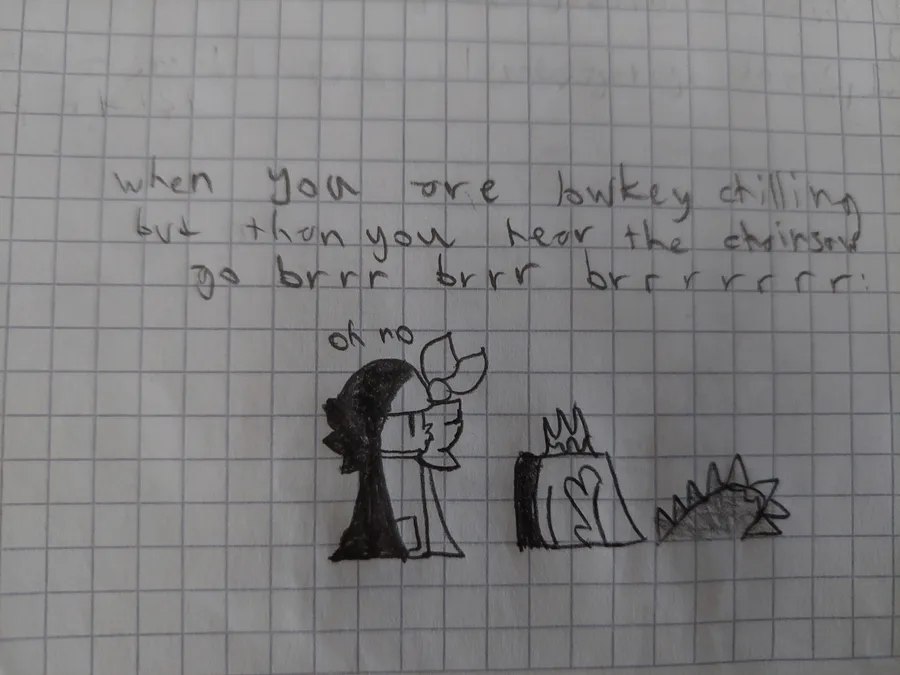 when you are lowkey chilling
but than you hear the chainsaw
go brrr brrr brrrrrrr:
oh no